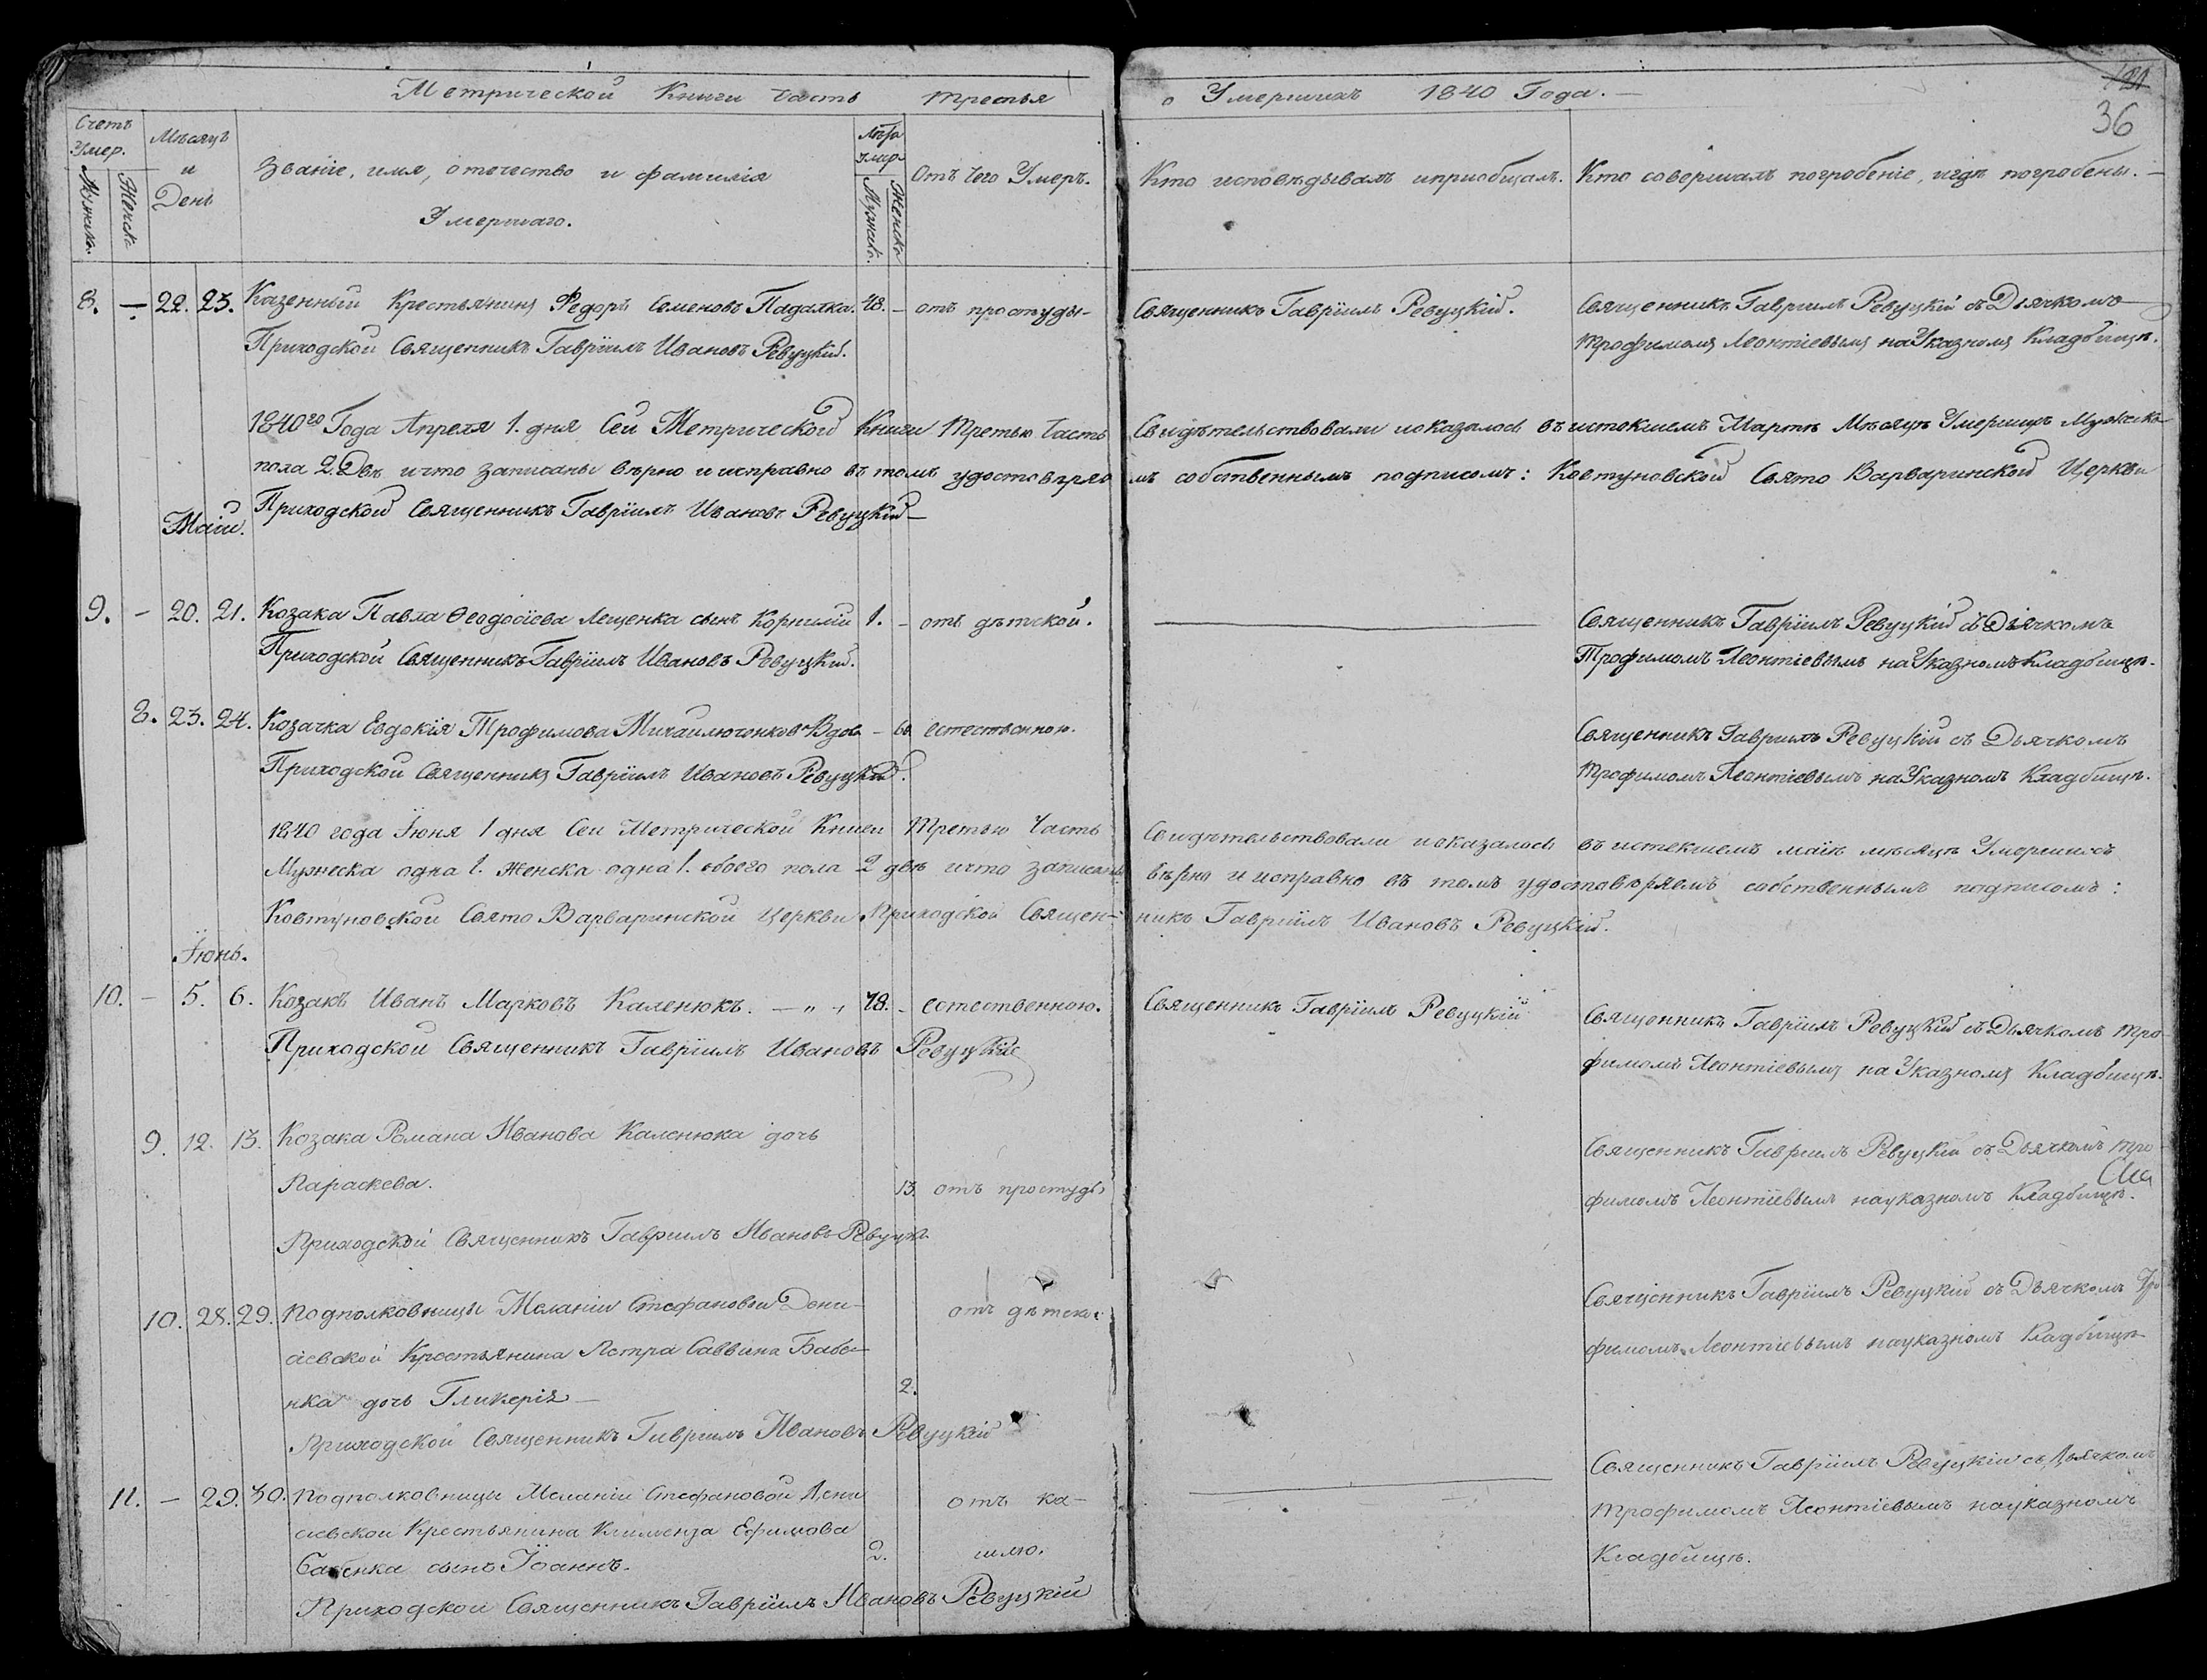 Метрической Книги Часть Третья о Умерших 1840 Года.
121
36
Счетъ Умер.
Мужска.
Женска
Мѣсяцъ и День
Званіе, имя, отечество и фамилія Умершаго.
Лѣта Умер.
Мужска.
Женска
Отъ Чего Умеръ.
Кто исповѣдывалъ и приобщалъ.
Кто совершалъ погробеніе, и гдѣ погробены.
8. — 22. 23. Казенный Крестьянинъ Федоръ Семеновъ Падалка. 48. — отъ простуды — Священникъ Гавріилъ Ревуцкій. Священникъ Гавріилъ Ревуцкій съ Дьячкомъ
Приходской Священникъ Гавріилъ Ивановъ Ревуцкій. Трофимомъ Леонтіевымъ на Указномъ Кладбищѣ.
1840го Года Апреля 1. дня Сей Метрической Книги Третью Часть Свидѣтельствовали и оказалось въ истокшемъ Мартѣ Мѣсяцѣ Умершихъ Мужеска
пола 2. Двѣ и что записаны вѣрно и исправно въ томъ удостовѣряемъ собственнымъ подписомъ: Ковтуновской Свято Варваринской Церкви
Приходской Священникъ Гавріилъ Ивановъ Ревуцкій —
Маій.
9. — 20. 21. Козака Павла Феодосіева Лещенка сынъ Корнилій 1. — отъ дѣтской. Священникъ Гавріилъ Ревуцкій съ Діячкомъ
Приходской Священникъ Гавріилъ Ивановъ Ревуцкій. Трофимомъ Леонтіевымъ на Указномъ Кладбищѣ.
8. 23. 24. Козачка Евдокія Трофимова Вдов. — 60 естественною. Священникъ Гавріилъ Ревуцкій съ Дьячкомъ
Приходской Священникъ Гавріилъ Ивановъ Ревуцкій. Трофимомъ Леонтіевымъ на Указномъ Кладбищѣ.
1840 года Іюня 1 дня Сей Метрической Книги Третью Часть Свидѣтельствовали и оказалось въ истекшемъ маіи мѣсяцѣ Умершихъ
Мужеска одна 1. Женска одна 1. обоего пола 2 двѣ и что записаны вѣрно и исправно въ томъ удостовѣряемъ собственнымъ подписомъ:
Ковтуновской Свято Варваринской Церкви Приходской Священникъ Гавріилъ Ивановъ Ревуцкій.
Іюнь.
10. — 5. 6. Козакъ Иванъ Марковъ Каленюкъ. 78. — естественною. Священникъ Гавріилъ Ревуцкій Священникъ Гавріилъ Ревуцкій съ Дьячкомъ Тро-
Приходской Священникъ Гавріилъ Ивановъ Ревуцкій фимомъ Леонтіевымъ на Указномъ Кладбищѣ.
9. 12. 13. Козака Романа Иванова Каленюка дочь Священникъ Гавріилъ Ревуцкій съ Дьячкомъ Тро-
Параскева. 13. отъ простуды фимомъ Леонтіевымъ на указномъ Кладбищѣ.
Приходской Священникъ Гавріилъ Ивановъ Ревуцкій
10. 28. 29. Подполковницы Меланіи Стефановы Дени- отъ дѣтской Священникъ Гавріилъ Ревуцкій съ Дьячкомъ Тро
сіевской Крестьянина Петра Саввина Бабе- фимомъ Леонтіевымъ на указномъ Кладбищѣ
нка дочь Гликерія — 2.
Приходской Священникъ Гавріилъ Ивановъ Ревуцкій
11. — 29. 30. Подполковницы Меланіи Стефановой Дени Священникъ Гавріилъ Ревуцкій съ Дьячкомъ
сіевской Крестьянина Климента Ефимова отъ ка- Трофимомъ Леонтіевымъ на указномъ
Бабенка сынъ Іоаннъ. 2. шлю. Кладбищѣ.
Приходской Священникъ Гавріилъ Ивановъ Ревуцкій